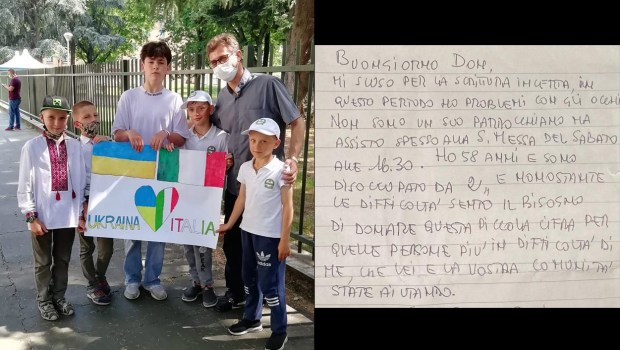 UKRAINA ITALIA
BUONGIORNO DON,
MI SCUSO PER LA SCRITTURA INCERTA, IN
QUESTO PERIODO HO PROBLEMI CON GLI OCCHI
NON SONO UN SUO PARROCCHIANO MA
ASSISTO SPESSO ALLA S. MESSA DEL SABATO
ALLE 16.30. HO 58 ANNI E SONO
DISOCCUPATO DA 2,, E NONOSTANTE
LE DIFFICOLTA' SENTO IL BISOGNO
DI DONARE QUESTA PICCOLA CIFRA PER
QUELLE PERSONE PIU' IN DIFFICOLTA' DI
ME, CHE LEI E LA VOSTRA COMUNITA'
STATE AIUTANDO.